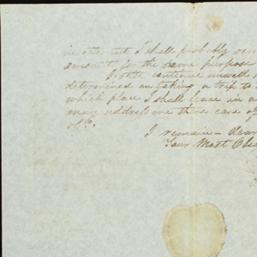 I shall probably
amount for the same purpose
continue unwell
determined on taking a trip to
which place I shall leave in a
may address me there care of
I remain - Dear
Your Most Obe